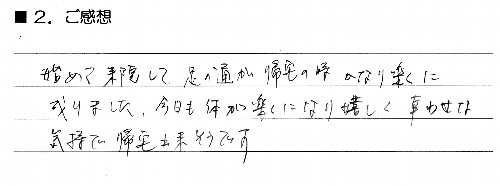 ■２．ご感想
始めて来院して足の通が帰宅の時かなり楽くに
成りました、今日も体が楽くになり嬉しく幸わせな
気持で帰宅出来そうです